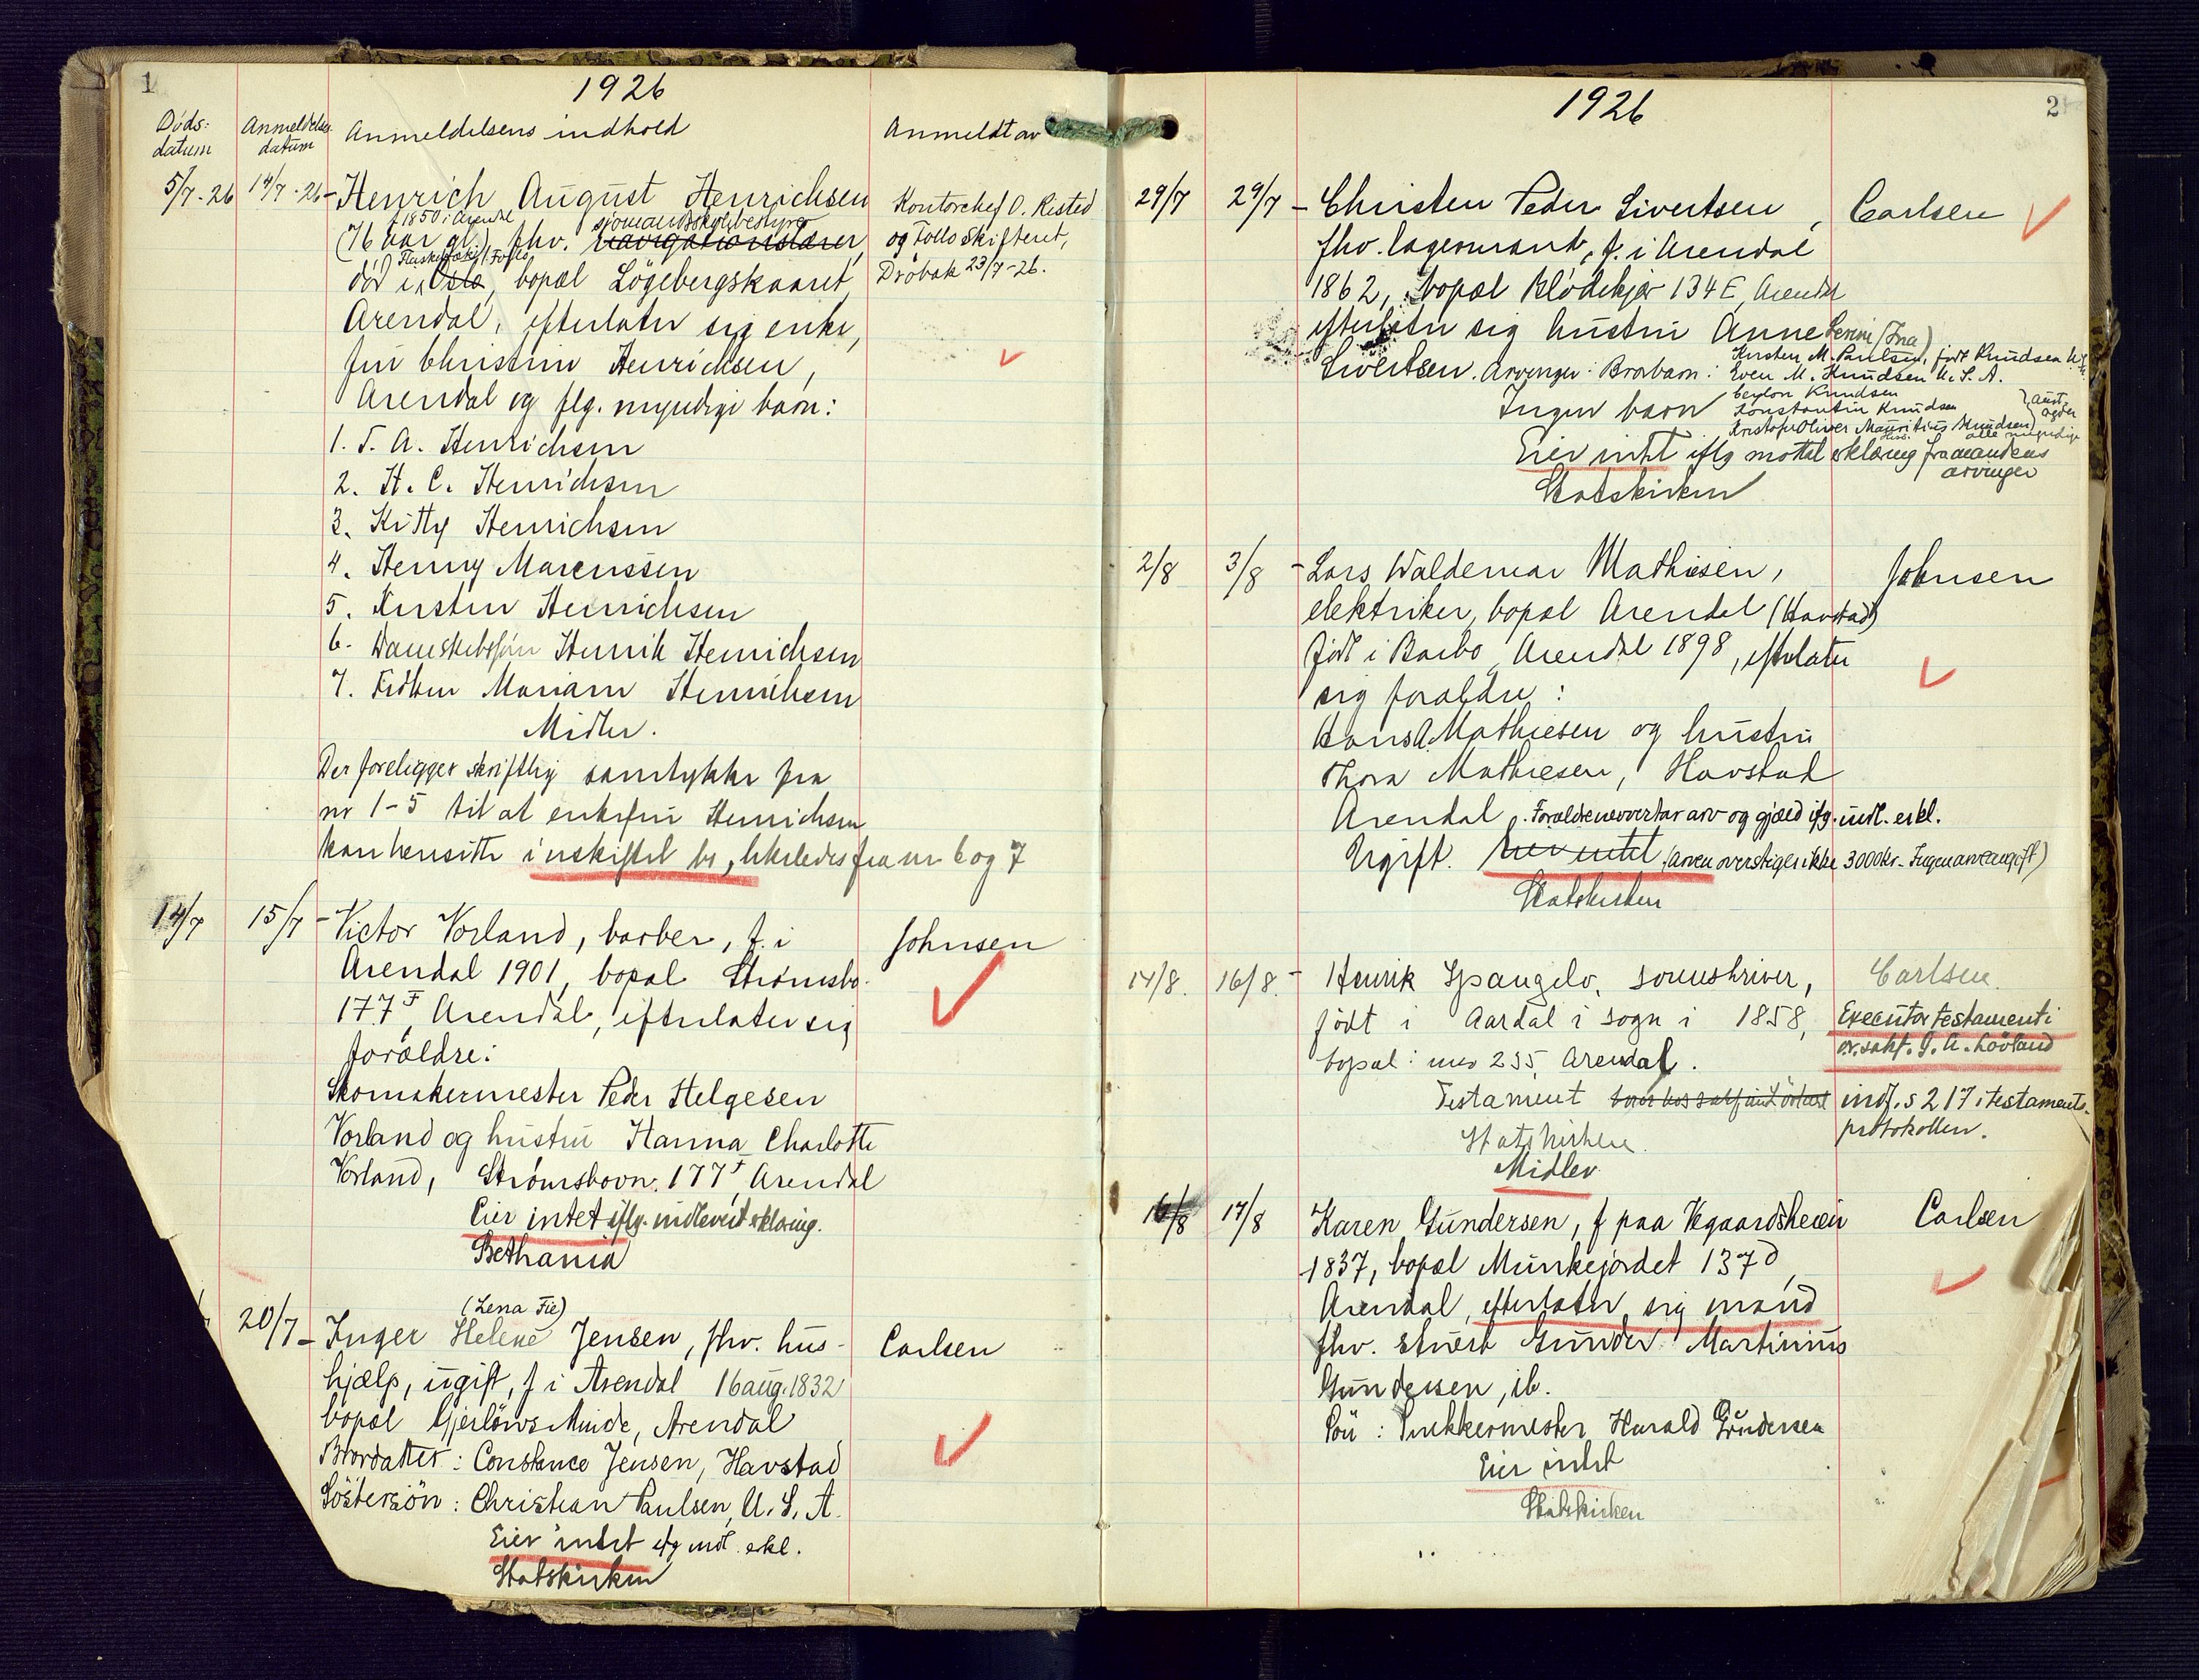 1
1926
Døds: datum
Anmeldelses datum
Anmeldelsens indhold
Anmeldt av
5/7-26 14/7-26 - Henrich August Henrichsen
f 1850 i Arendal sjømandsskolebestyrer
(76 aar gl.), fhv. navigationslærer,
død i Oslo, bopæl Lögebergskaaret
Arendal, efterlater sig enke,
fru Christine Henrichsen,
Arendal og flg. myndige barn:
Kontorchef O. Risted
og Follo Skifteret,
Drøbak 23/7-26.
1. T. A. Henrichsen
2. H. C. Henrichsen
3. Kitty Henrichsen
4. Henny Marcussen
5. Kirsten Henrichsen
6. Henrik Henrichsen
7. Frøken Mariane Henrichsen
Midler.
Der foreligger skriftlig samtykke fra
nr 1-5 til at enkefru Henrichsen
kan hensitte i uskiftet bo, likeledes fra nr 6 og 7
14/7 15/7 - Victor Vorland, barber, f. i
Arendal 1901, bopæl Strømsbo.
177 F, Arendal, efterlater sig
forældre:
Skomakermester Peder Helgesen
Vorland og hustru Hanna Charlotte
Vorland, Strømsbovn. 177 F, Arendal
Eier intet iflg. indlevert erklæring.
Bethania
Johnsen
20/7 - (Lena Fie)
Inger Helene Jensen, fhv. hus-
hjælp, ugift, f i Arendal 16 aug. 1832
bopæl Gjerløws Minde, Arendal
Brordatter: Constance Jensen, Havstad
Søstersøn: Christian Paulsen, U. S. A.
Eier intet iflg indl. erkl.
Statskirken
Carlsen
2
1926
29/7 29/7 - Christen Peder Sivertsen,
fhv. lagermand, f. i Arendal
1862, bopæl Klødekjær 134 E, Arendal
efterlater sig hustru Anne Serine (Ina)
Sivertsen. Arvinger: Brorbarn:
Kirsten M. Paulsen, født Knudsen
Even M. Knudsen U. S. A.
Ceylon Knudsen
Konstantin Knudsen
Kristofer Oliver Mauritius Knudsen
Aust-Agder
alle myndige
Ingen barn
Eier intet iflg mottat erklæring fra mandens
arvinger
Statskirken
Carlsen
2/8 3/8 - Lars Waldemar Mathisen,
elektriker, bopæl Arendal (Havstad)
født i Barbo, Arendal 1898, efterlater
sig forældre:
Hans A. Mathiesen og hustru
Thora Mathiesen, Havstad
Arendal. Forældrene overtar arv og gjæld iflg. indl. erkl.
Ugift. Eier intet (arven overstiger ikke 3000 kr. - Ingen arveavgift)
Statskirken
Johnsen
14/8. 16/8. - Henrik Spangelo, sorenskriver,
født i Aardal i sogn i 1858,
bopæl: 235, Arendal.
Testament
Statskirken.
Midler
Carlsen.
Executor testamenti
o.r.sakf. J. A. Løvland
indf. s 217 i testaments-
protokollen.
16/8 17/8 Karen Gundersen, f paa Vegaardsheien
1837, bopæl Munkejordet 137 d,
Arendal, efterlater sig mand
fhv. stuert Gunder Martinius
Gundersen, ib.
Søn: Snekkermester Harald Gundersen
Eier intet
Statskirken
Carlsen